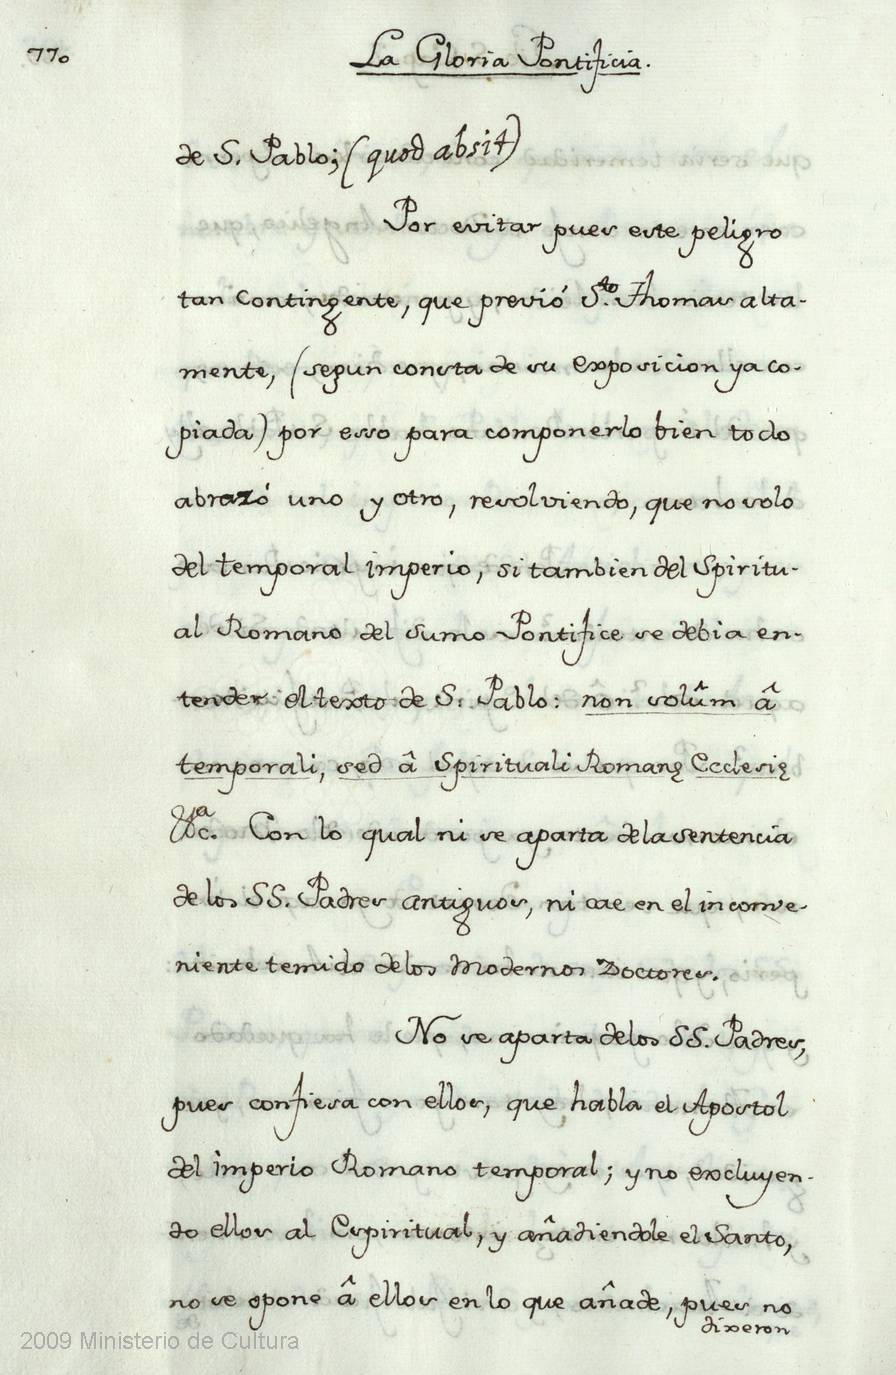 770
La Gloria Pontificia.
de S. Pablo; (quod absit)
Por evitar pues este peligro
tan contingente, que previó S.to Thomas alta-
mente, (segun consta de su exposicion ya co-
piada) por esso para componerlo bien todo
abrazó uno y otro, resolviendo, que no solo
del temporal imperio, si tambien del Spiritu-
al Romano del sumo Pontifice se debia en-
tender el texto de S. Pablo: non solûm â
temporali, sed â Spirituali Romanę Ecclesię
&c.a Con lo qual ni se aparta de la sentencia
de los SS. Padres antiguos, ni cae en el inconve-
niente temido de los Modernos Doctores.
No se aparta de los SS. Padres,
pues confiesa con ellos, que habla el Apostol
del imperio Romano temporal; y no excluyen-
do ellos al Espiritual, y añadiendole el Santo,
no se opone â ellos en lo que añade, pues no
dixeron
2009 Ministerio de Cultura